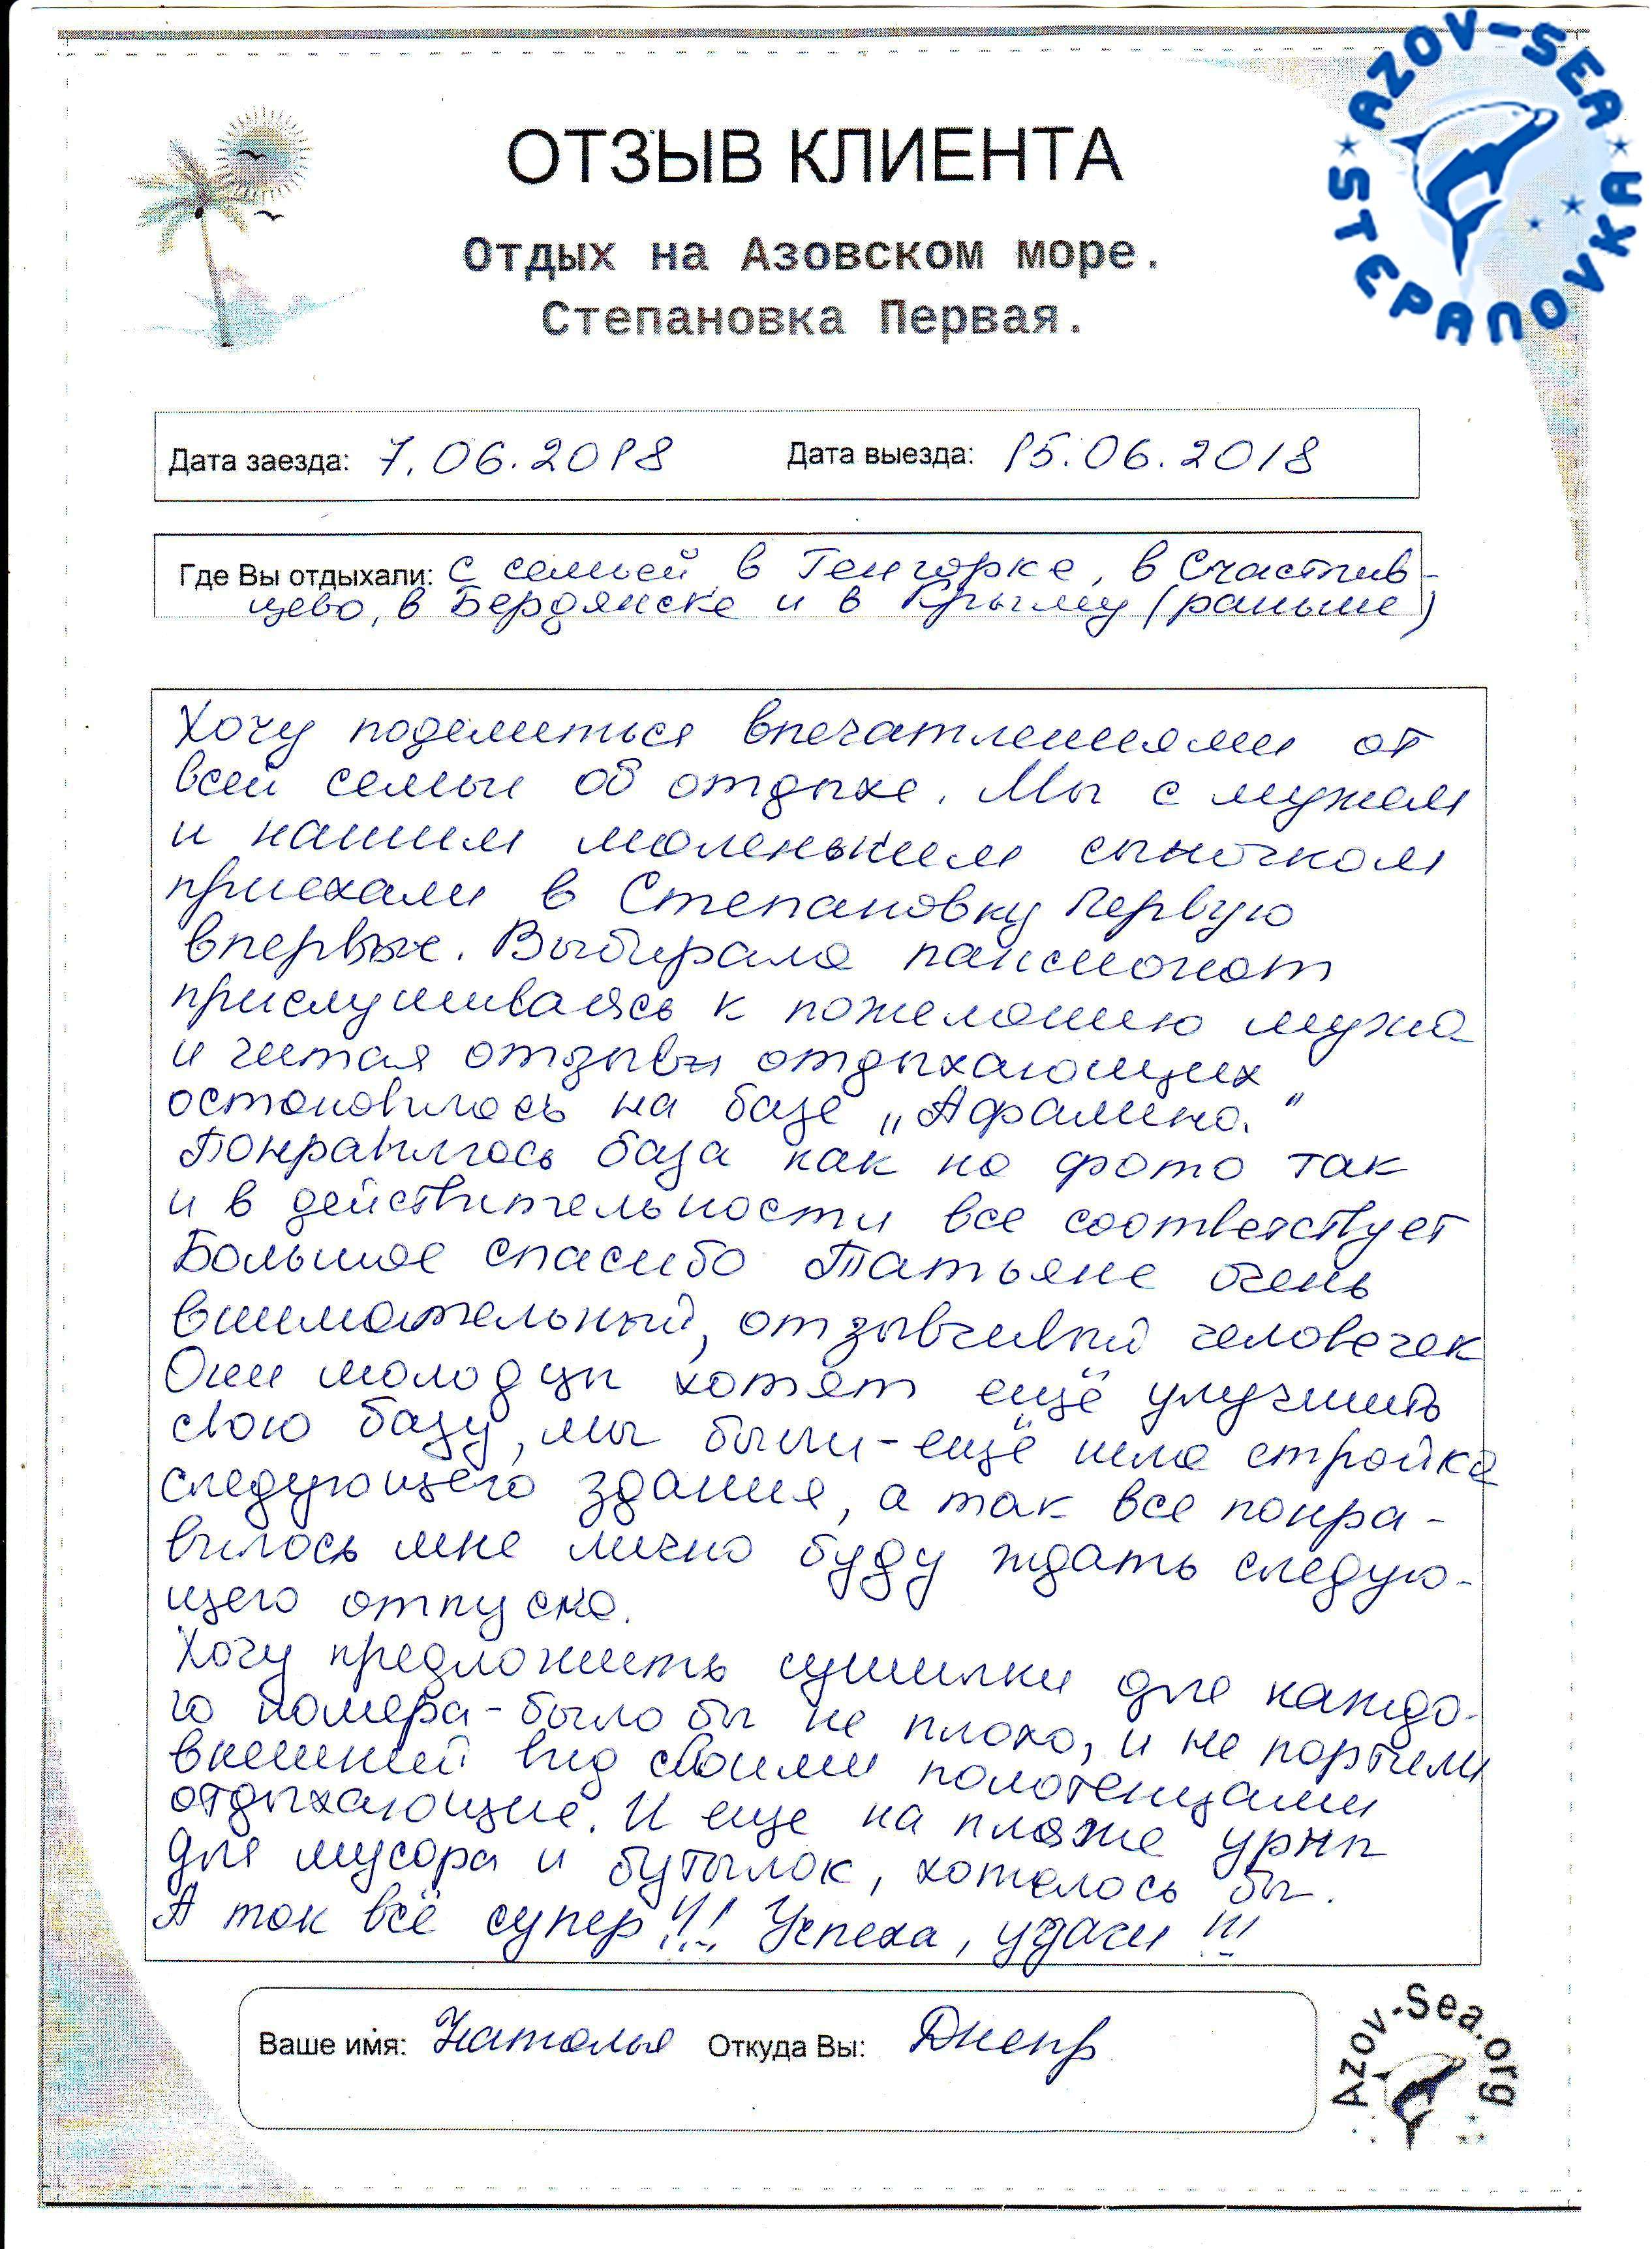 AZOV-SEA
STEPANOVKA
ОТЗЫВ КЛИЕНТА
Отдых на Азовском море.
Степановка Первая.
Дата заезда: 7.06.2018 Дата выезда: 15.06.2018
Где Вы отдыхали: с семьей в Генгорке, в Счастлив-
цево, в Бердянске и в Крыму (раньше)
Хочу поделиться впечатлениями от
всей семьи об отдыхе. Мы с мужем
и нашим маленьким сыночком
приехали в Степановку Первую
впервые. Выбирала пансионат
прислушиваясь к пожеланию мужа
и читая отзывы отдыхающих
остановилась на базе „Афалина."
Понравилась база как на фото так
и в действительности все соответствует
Большое спасибо Татьяне очень
внимательный, отзывчивый человечек
Они молодцы хотят ещё улучшить
свою базу, мы были-ещё шла стройка
следующего здания, а так все понра-
вилось мне лично буду ждать следую-
щего отпуска.
Хочу предложить сушилки для каждо-
го номера-было бы не плохо, и не портили
внешний вид своими полотенцами
отдыхающие. И еще на пляже урны
для мусора и бутылок, хотелось бы.
А так всё супер!!! Успеха, удачи!!!
Ваше имя: Наталья Откуда Вы: Днепр
Azov-Sea.org